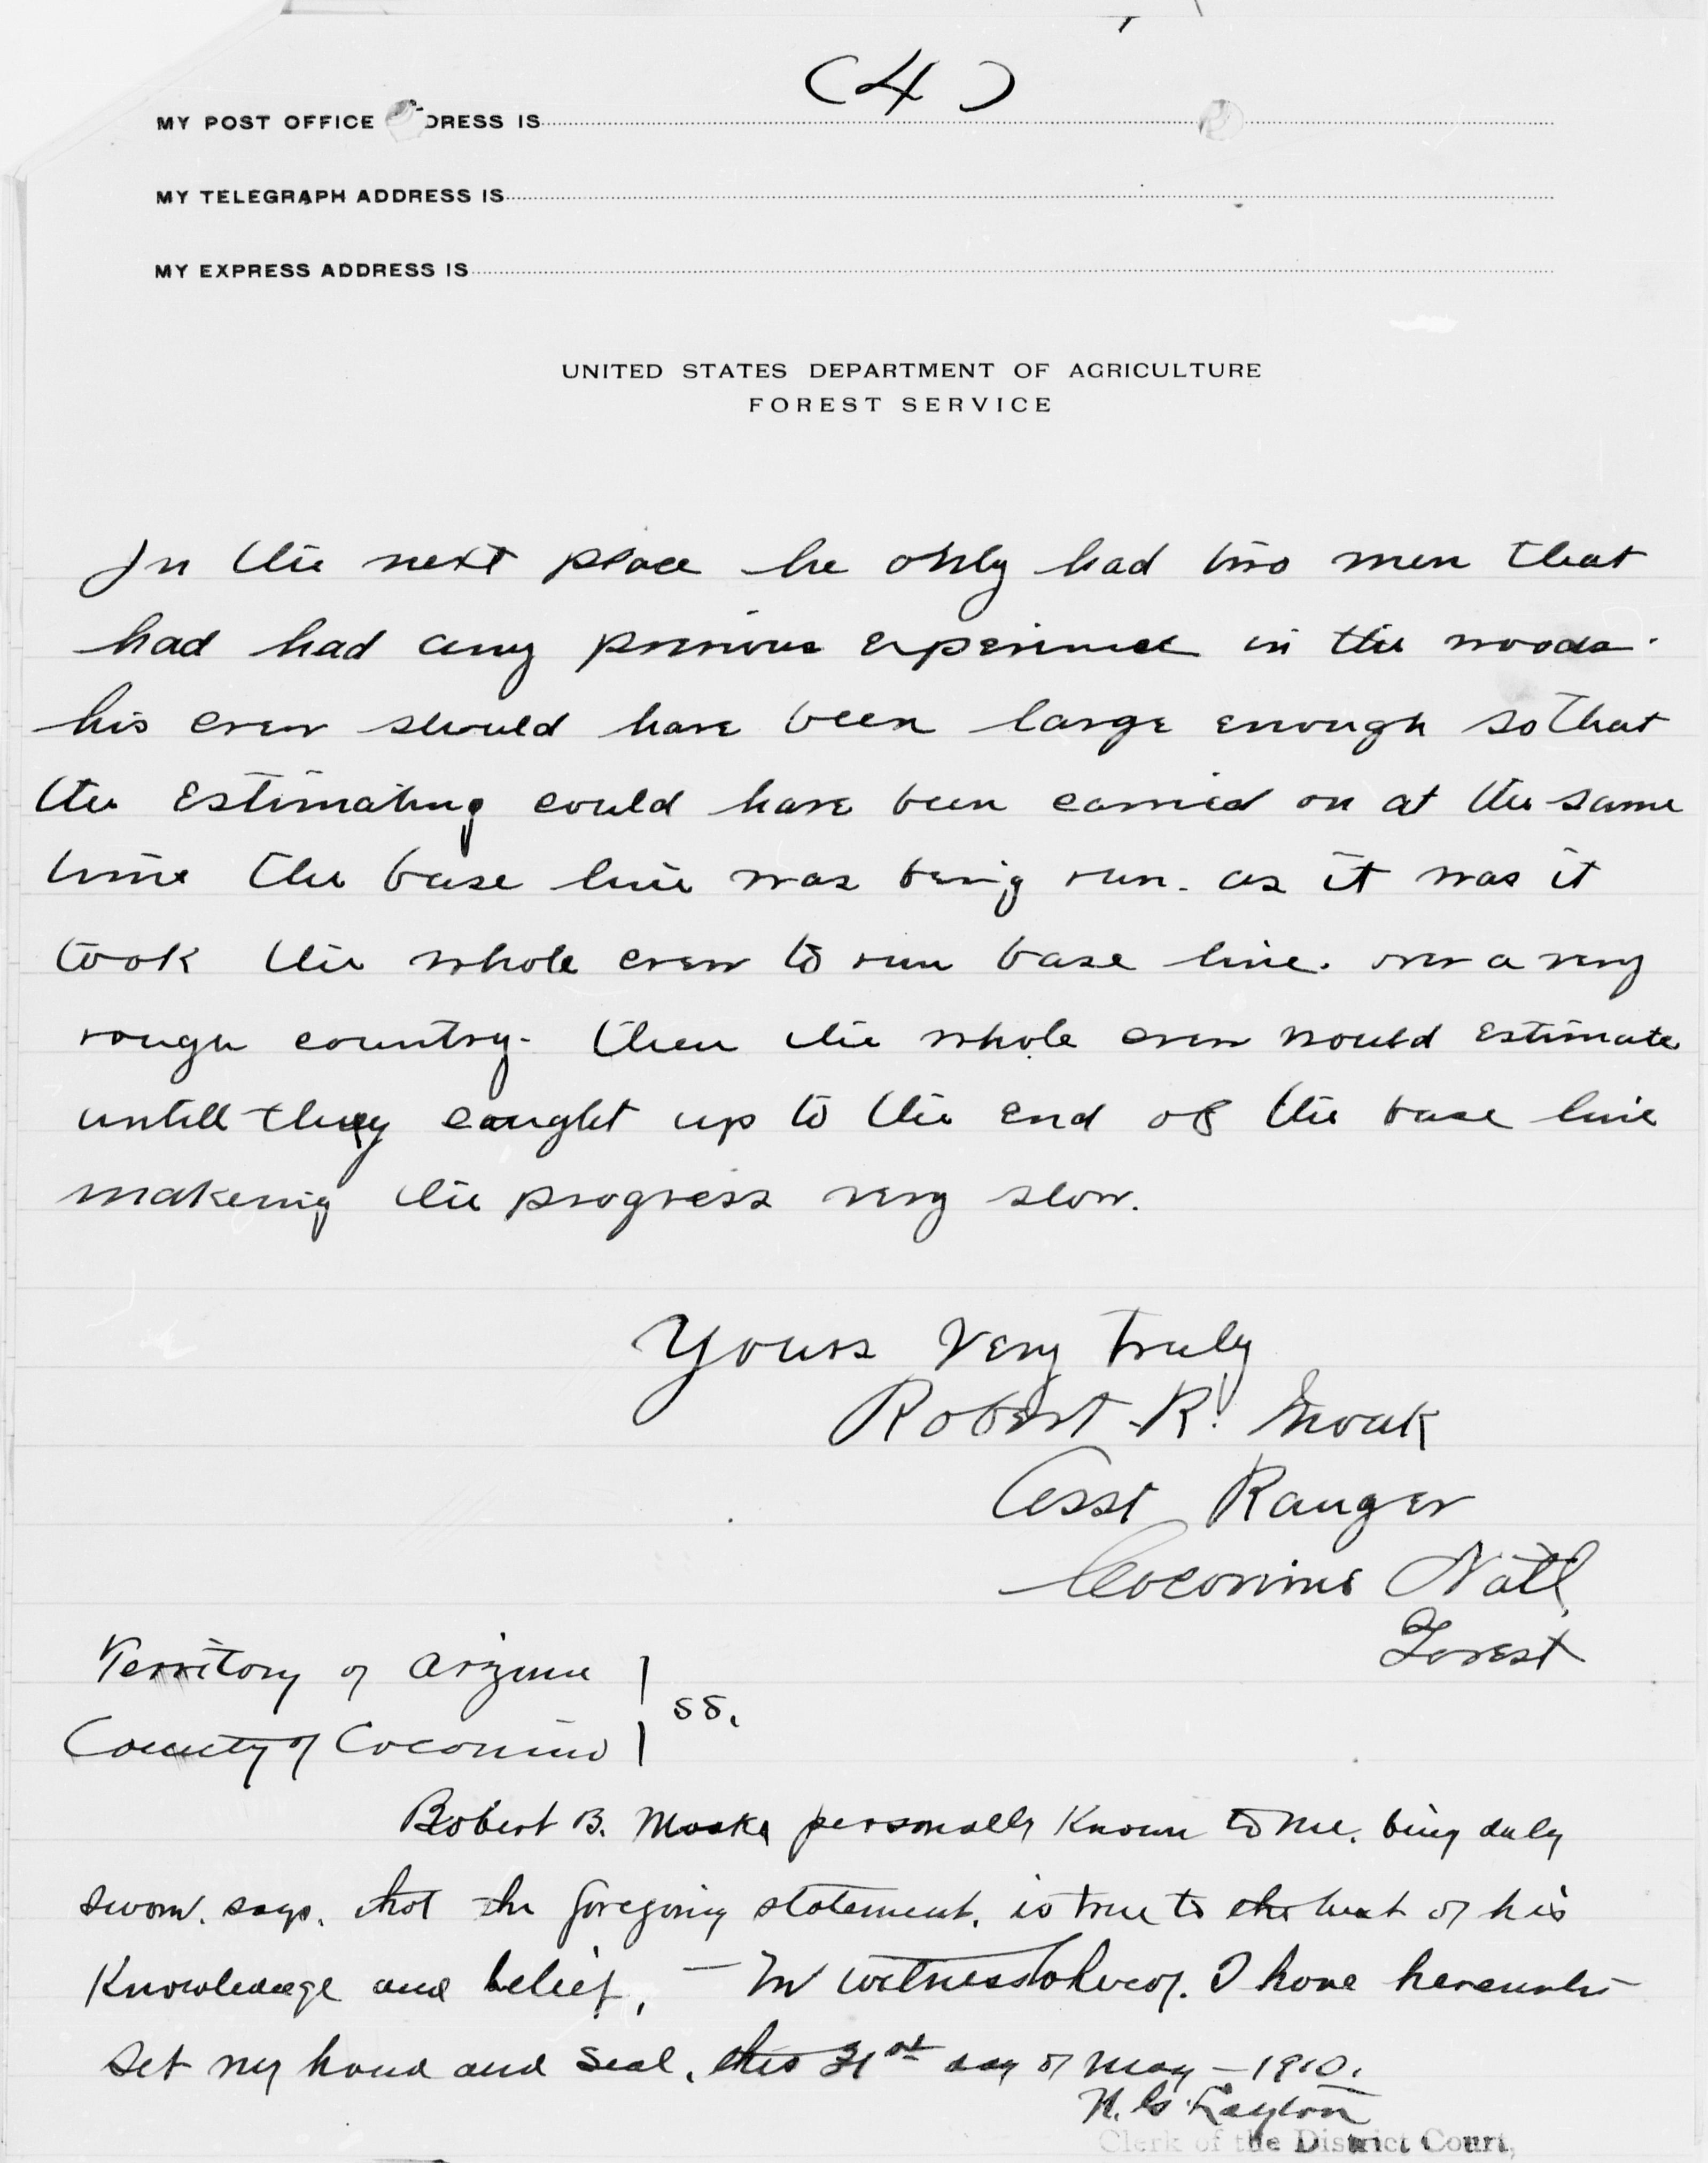 (4)
MY POST OFFICE DRESS IS
MY TELEGRAPH ADDRESS IS
MY EXPRESS ADDRESS IS
UNITED STATES DEPARTMENT OF AGRICULTURE
FOREST SERVICE
In the next place he only had two men that
had had any previous experience in the woods.
his crew should have been large enough so that
the estimating could have been carried on at the same
time the base line was being run. as it was it
took the whole crew to run base line. over a very
rough country. then the whole crew would estimate
untill they caught up to the end of the base line
makeing the progress very slow.
Yours Very Truly
Robert R.
Asst Ranger
Coconino Natl
Forest
Territory of Arizona
County of Coconino
ss.
Robert B. personally known to me. being duly
sworn. says. that the foregoing statement. is true to the best of his
Knowledege and belief. — In witness whereof. I have hereunto
set my hand and seal. this 31st day of May — 1910.
H. G. Layton
Clerk of the District Court,